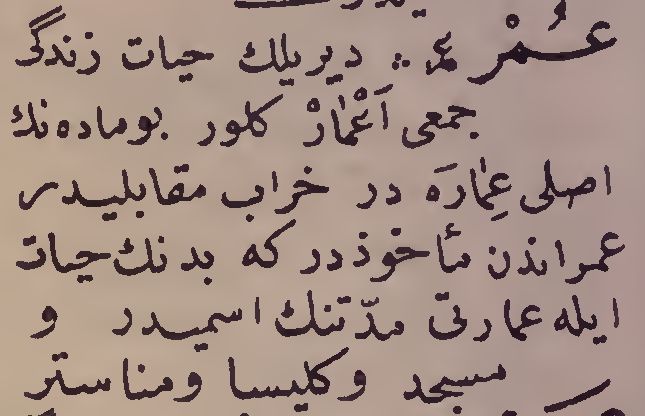 عُمْرْ عم ⁂ ديريلك حيات زندگی
جمعی اَعْمَارْ كلور بوماده‌نك
اصلی عِمَارَه در خراب مقابليدر
عمراندن مأخوذدر كه بدنك حيات
ايله عمارتی مدّتنك اسميدر و
مسجد و كليسا و مناستر